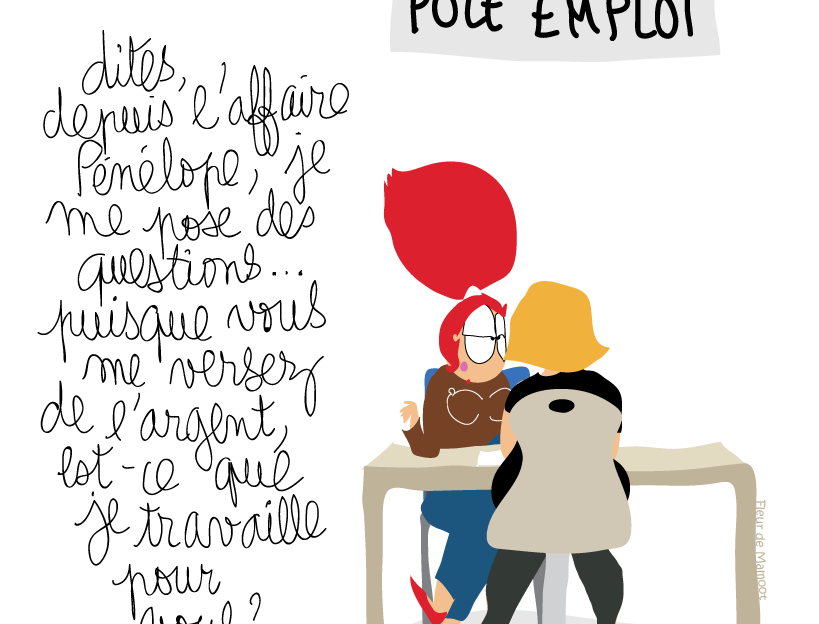 PÔLE EMPLOI
dites,
depuis l'affaire
Pénélope, je
me pose des
questions...
puisque vous
me versez
de l'argent,
est-ce que
je travaille
pour
vous?
Fleur de Mamoot